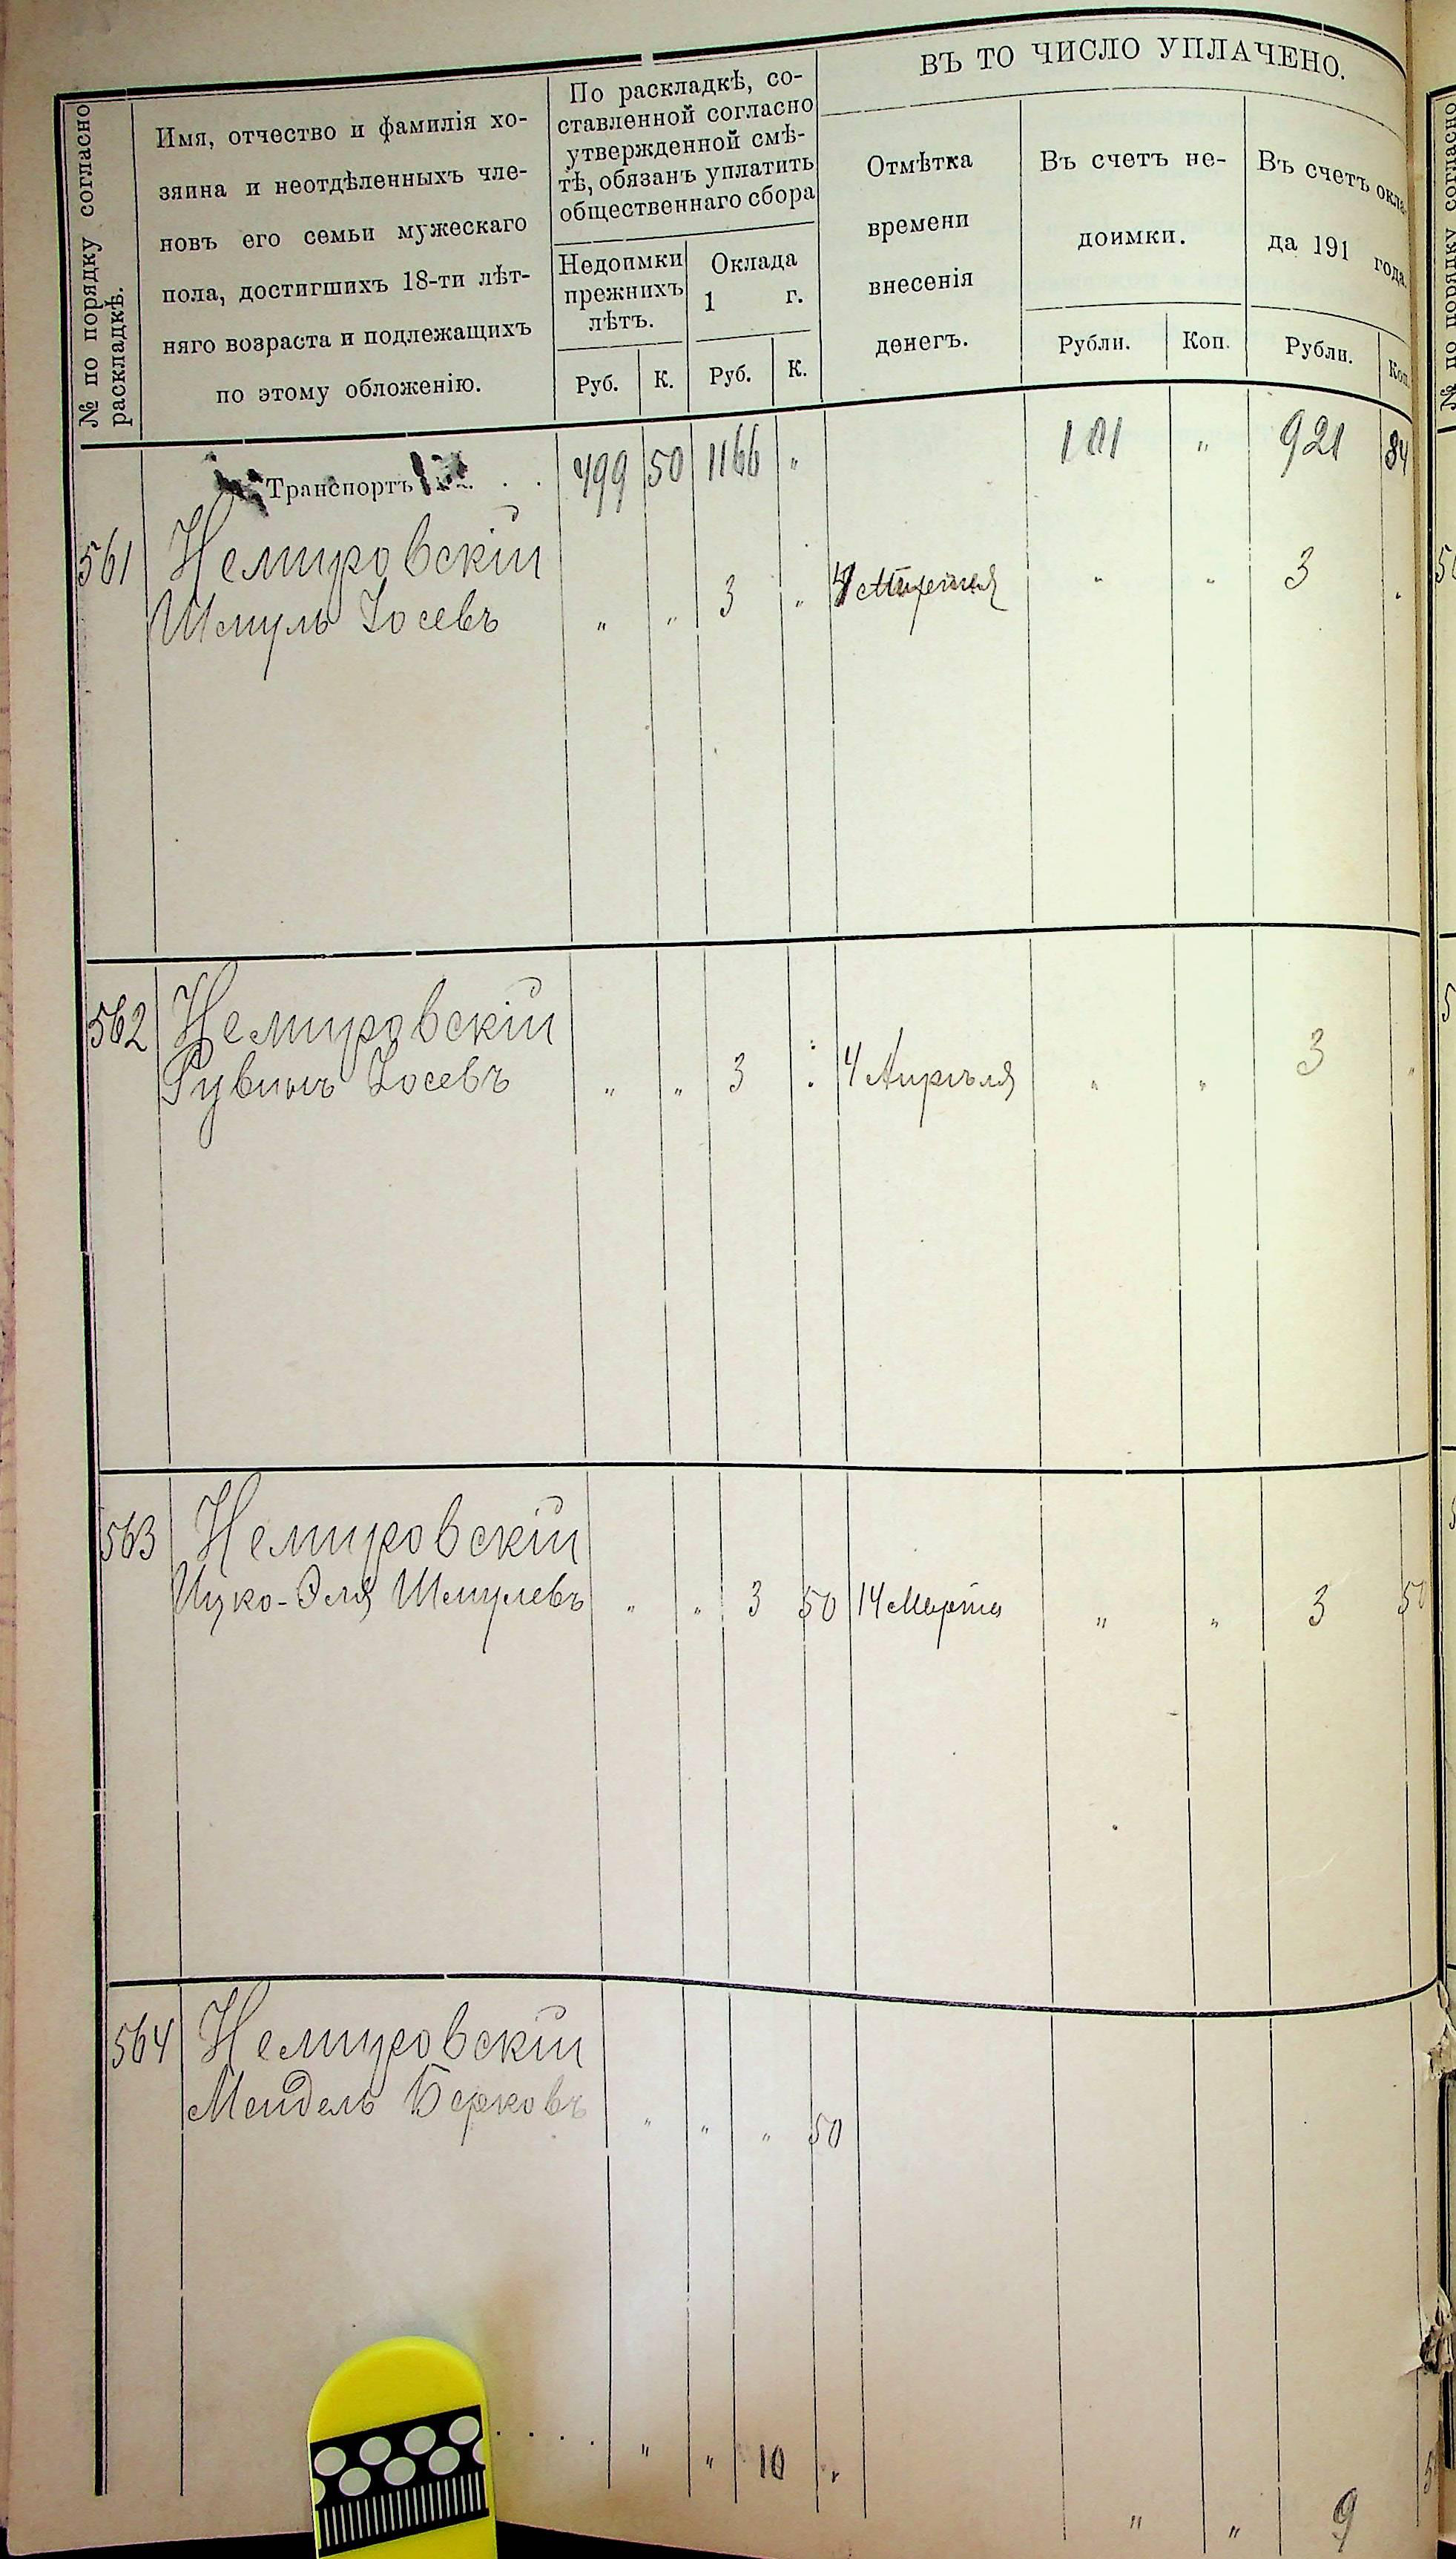 ВЪ ТО ЧИСЛО УПЛАЧЕНО.
№ по порядку согласно
раскладкѣ.
Имя, отчество и фамилія хо-
зяина и неотдѣленныхъ чле-
новъ его семьи мужескаго
пола, достигшихъ 18-ти лѣт-
няго возраста и подлежащихъ
по этому обложенію.
По раскладкѣ, со-
ставленной согласно
утвержденной смѣ-
тѣ, обязанъ уплатить
общественнаго сбора
Недоимки
прежнихъ
лѣтъ.
Оклада
1 г.
Руб. К. Руб. К.
Отмѣтка
времени
внесенія
денегъ.
Въ счетъ не-
доимки.
Рубли. Коп.
Въ счетъ окла-
да 191 года
Рубли. Коп.
Транспортъ . . 499 50 1166 " 101 " 921 84
561 Немировскій
Шмуль Іосевъ " " 3 " 4 " " 3 "
562 Немировскій
Рувинъ Іосевъ " " 3 : 4 Апрѣля " " 3 "
563 Немировскій
Ицко-Эля Шмулевъ " " 3 50 14 Марта " " 3 50
564 Немировскій
Мендель Берковъ " " " 50
. . . . " " 10 " " " 9
№ по порядку согласно